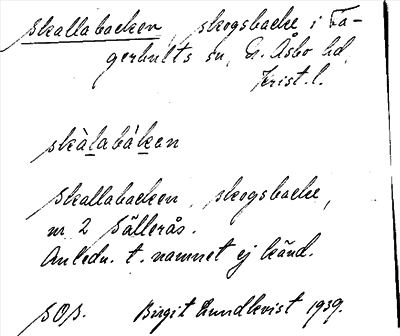 Skallabacken, skogsbacke i Fa-
gerhults sn, N. Åsbo hd,
Krist. l.
skàlabáken
Skallabacken, skogsbacke,
nr 2 Sällerås.
Anledn. t. namnet ej känd.
SOS. Birgit Lundkvist 1939.